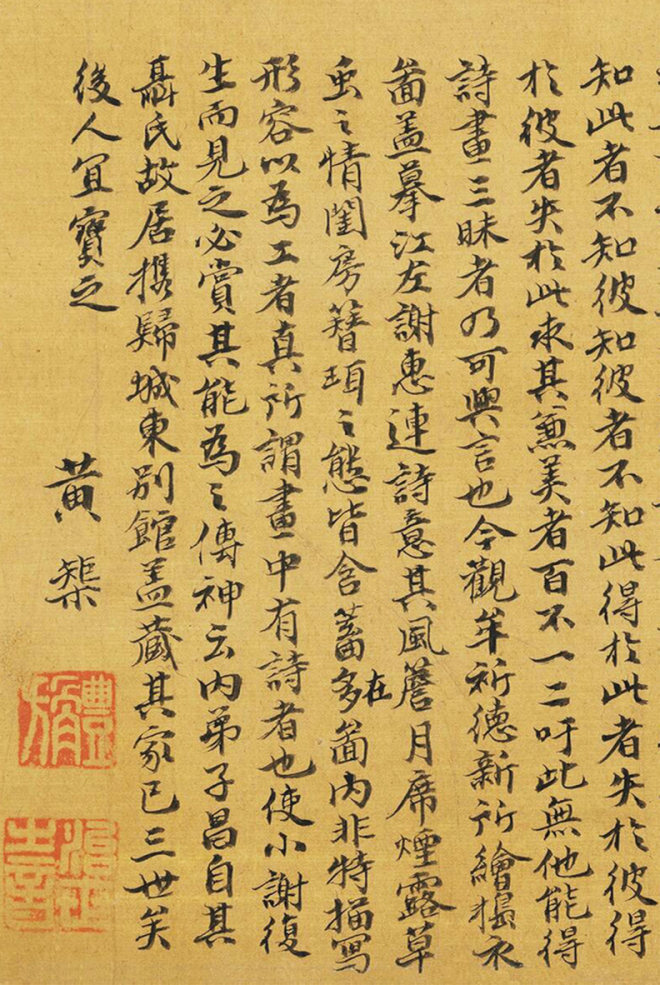 知此者不知彼知彼者不知此得於此者失於彼得
於彼者失於此求其兼美者百不一二吁此無他能得
詩畫三昧者乃可與言也今觀牟祈德新所繪擣衣
啚盖摹江左謝惠連詩意其風簷月席煙露草
虫之情閨房簪珥之態皆含蓄多在啚内非特描写
形容以為工者真所謂畫中有詩者也使小謝復
生而見之必賞其能為之傳神云内弟子昌自其
聶氏故居携歸城東別館盖蔵其家已三世矣
後人宜寳之
黄榘